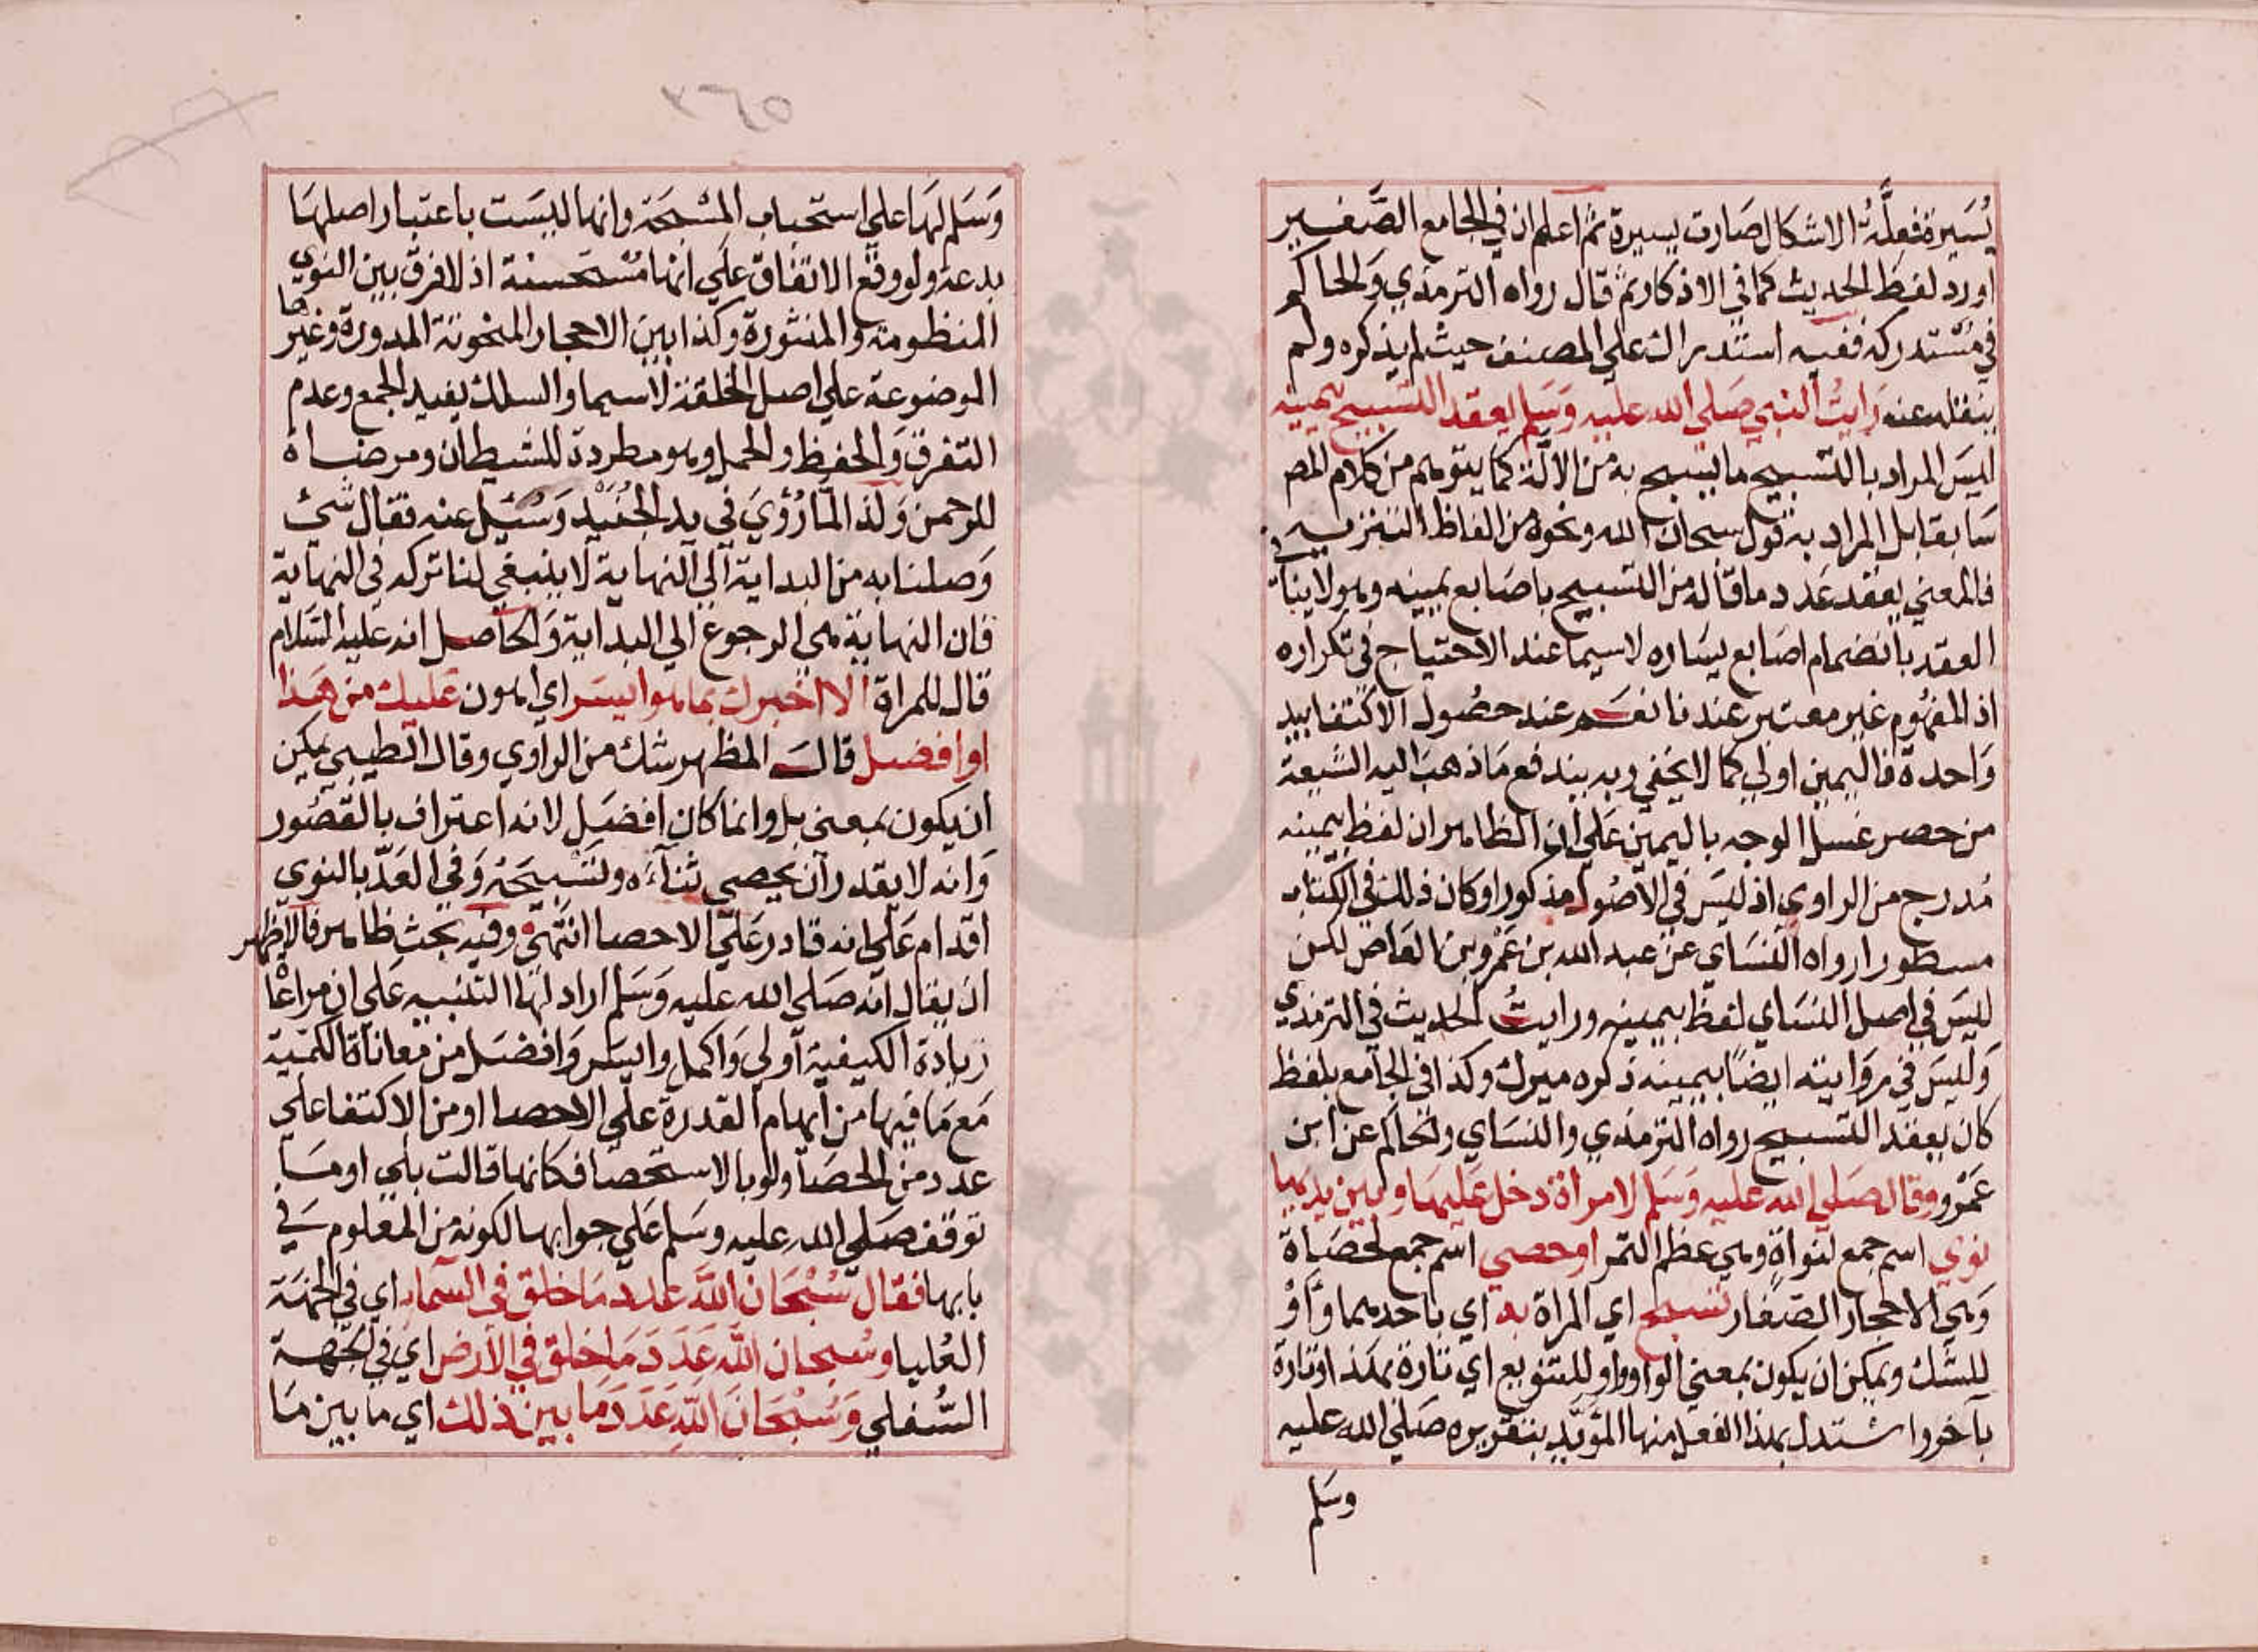 يُسَيرة فعلَّة الاشكال صارت يسيرة ثم اعلم ان في الجامع الصَّغير
اورد لفظ الحديث كما في الاذكار ثم قال رواه الترمذي والحاكم
في مستدركه ففيه استدراك علي المصنف حيث لم يذكره ولم
ينقله عنه رايتُ النبي صَلي الله عليه وَسَلم يعقد التسبيح بيمينه
ليسَ المراد بالتسبيح ما يسبح به من الآلة كما يتوهم من كلام المص
سَابقا بل المراد به قول سبحان الله ونحوه من الفاظ التنزيه
فالمعني يعقد عَدد ما قاله من التسبيح باصَابع يمينه وهو لا ينافي
العقد بانضمام اصَابع يسَاره لاسيما عند الاحتياج في تكراره
اذ المفهُوم غير معتبر عندنا نعَم عند حصُول الاكتفا بيد
وَاحدة فاليمين اولي كما لا يخفي وبه يندفع مَا ذهبَ اليه الشيعة
من حصر غسل الوجه باليمين عَلي ان الظاهر ان لفظ بيمينه
مُدرج من الراوي اذ ليسَ في الاصُول مذكورا وكان ذلك في الكتاب
مسطورا رواه النسَاي عن عبد الله بن عَمْرو بن العَاص لكن
ليسَ في اصل النسَاي لفظ بيمينه ورايتُ الحديث في الترمذي
وَليسَ في روَايته ايضًا بيمينه ذكره ميرك وكذا في الجامع بلفظ
كان يعقد التسبيح رواه الترمذي والنسَاي والحاكم عن ابن
عَمْرو وقال صَلي الله عليه وَسَلم لامراة دخل عَليهَا وبين يديها
نوي اسم جمع لنواةٍ وهي عظم التمر او حصي اسم جمع لحصَاة
وَهي الاحجار الصّغار تسبح اي المراة به اي باحدهما وَاَوْ
للشك ويمكن ان يكون بمعني الواو واو للتنويع اي تارة بهذا وتارة
بآخر واستدل بهذا الفعل منها المؤيّد بتقريره صَلي الله عليه
وسَلم
٢٦٥
وَسَلم لهَا علي استحباب المسْبحَة وانها ليسَت باعتبار اصلهَا
بدعة ولو وقع الاتفاق عَلَي انها مُسْتحسنة اذ لا فرق بين النوي
المنظومة والمنثورة وكذا بين الاحجار المنحوتة المدورة وغيرها
الموضوعة علي اصل الخلقة لاسيما والسلك يفيد الجمع وعدم
التفرق وَالحفظ والحمل وهو مطردة للشيطان ومرضاة
للرحمن وَلذا لمّا رُؤيَ في يد الجُنَيْد وَسُئِل عنه فقال شئ
وَصلنا به من البداية الي النهاية لا ينبغي لنا تركه في النهاية
فان النهاية هي الرجوع الي البداية وَالحاصل انه عليه السَّلام
قال للمراة الا اخبرك بما هو ايسَر اي اهون عَليك من هَذا
او افضل قالَ المظهر شك من الراوي وقال الطيبي يمكن
ان يكون بمعني بل وانما كان افضَل لانه اعتراف بالقصُور
وَانه لا يقدر ان يحصي ثنآءَه وتسْبيحَهُ وَفي العَدّ بالنوي
اقدام عَلي انه قادر عَلَي الاحصا انتَهي وفيه بحث ظاهر فالاظهر
ان يقال انّه صَلي الله عليه وَسَلم اراد لها التنبيه عَلي ان مراعَا
زيادة الكيفية اولي وَاكمل وايسَر وَافضَل من معاناة الكمّية
مَع مَا فيها من ايهام القدرة علي الاحصا او من الاكتفا علي
عدد من الحصَا ولو بالاستحصا فكانها قالت بلي او مَا
توقف صَلي الله عليه وسَلم عَلي جوابها لكونه من المعلوم في
بابها فقال سُبْحَان اللّهَ عَدد مَا خلق في السّماءِ اي في الجهَة
العُليا وسُبحان اللّهَ عَدَدَ مَا خلق في الارض اي في الجهة
السُّفلي وَسُبْحَانَ اللّهِ عَدَدَ مَا بين ذلك اي ما بين مَا